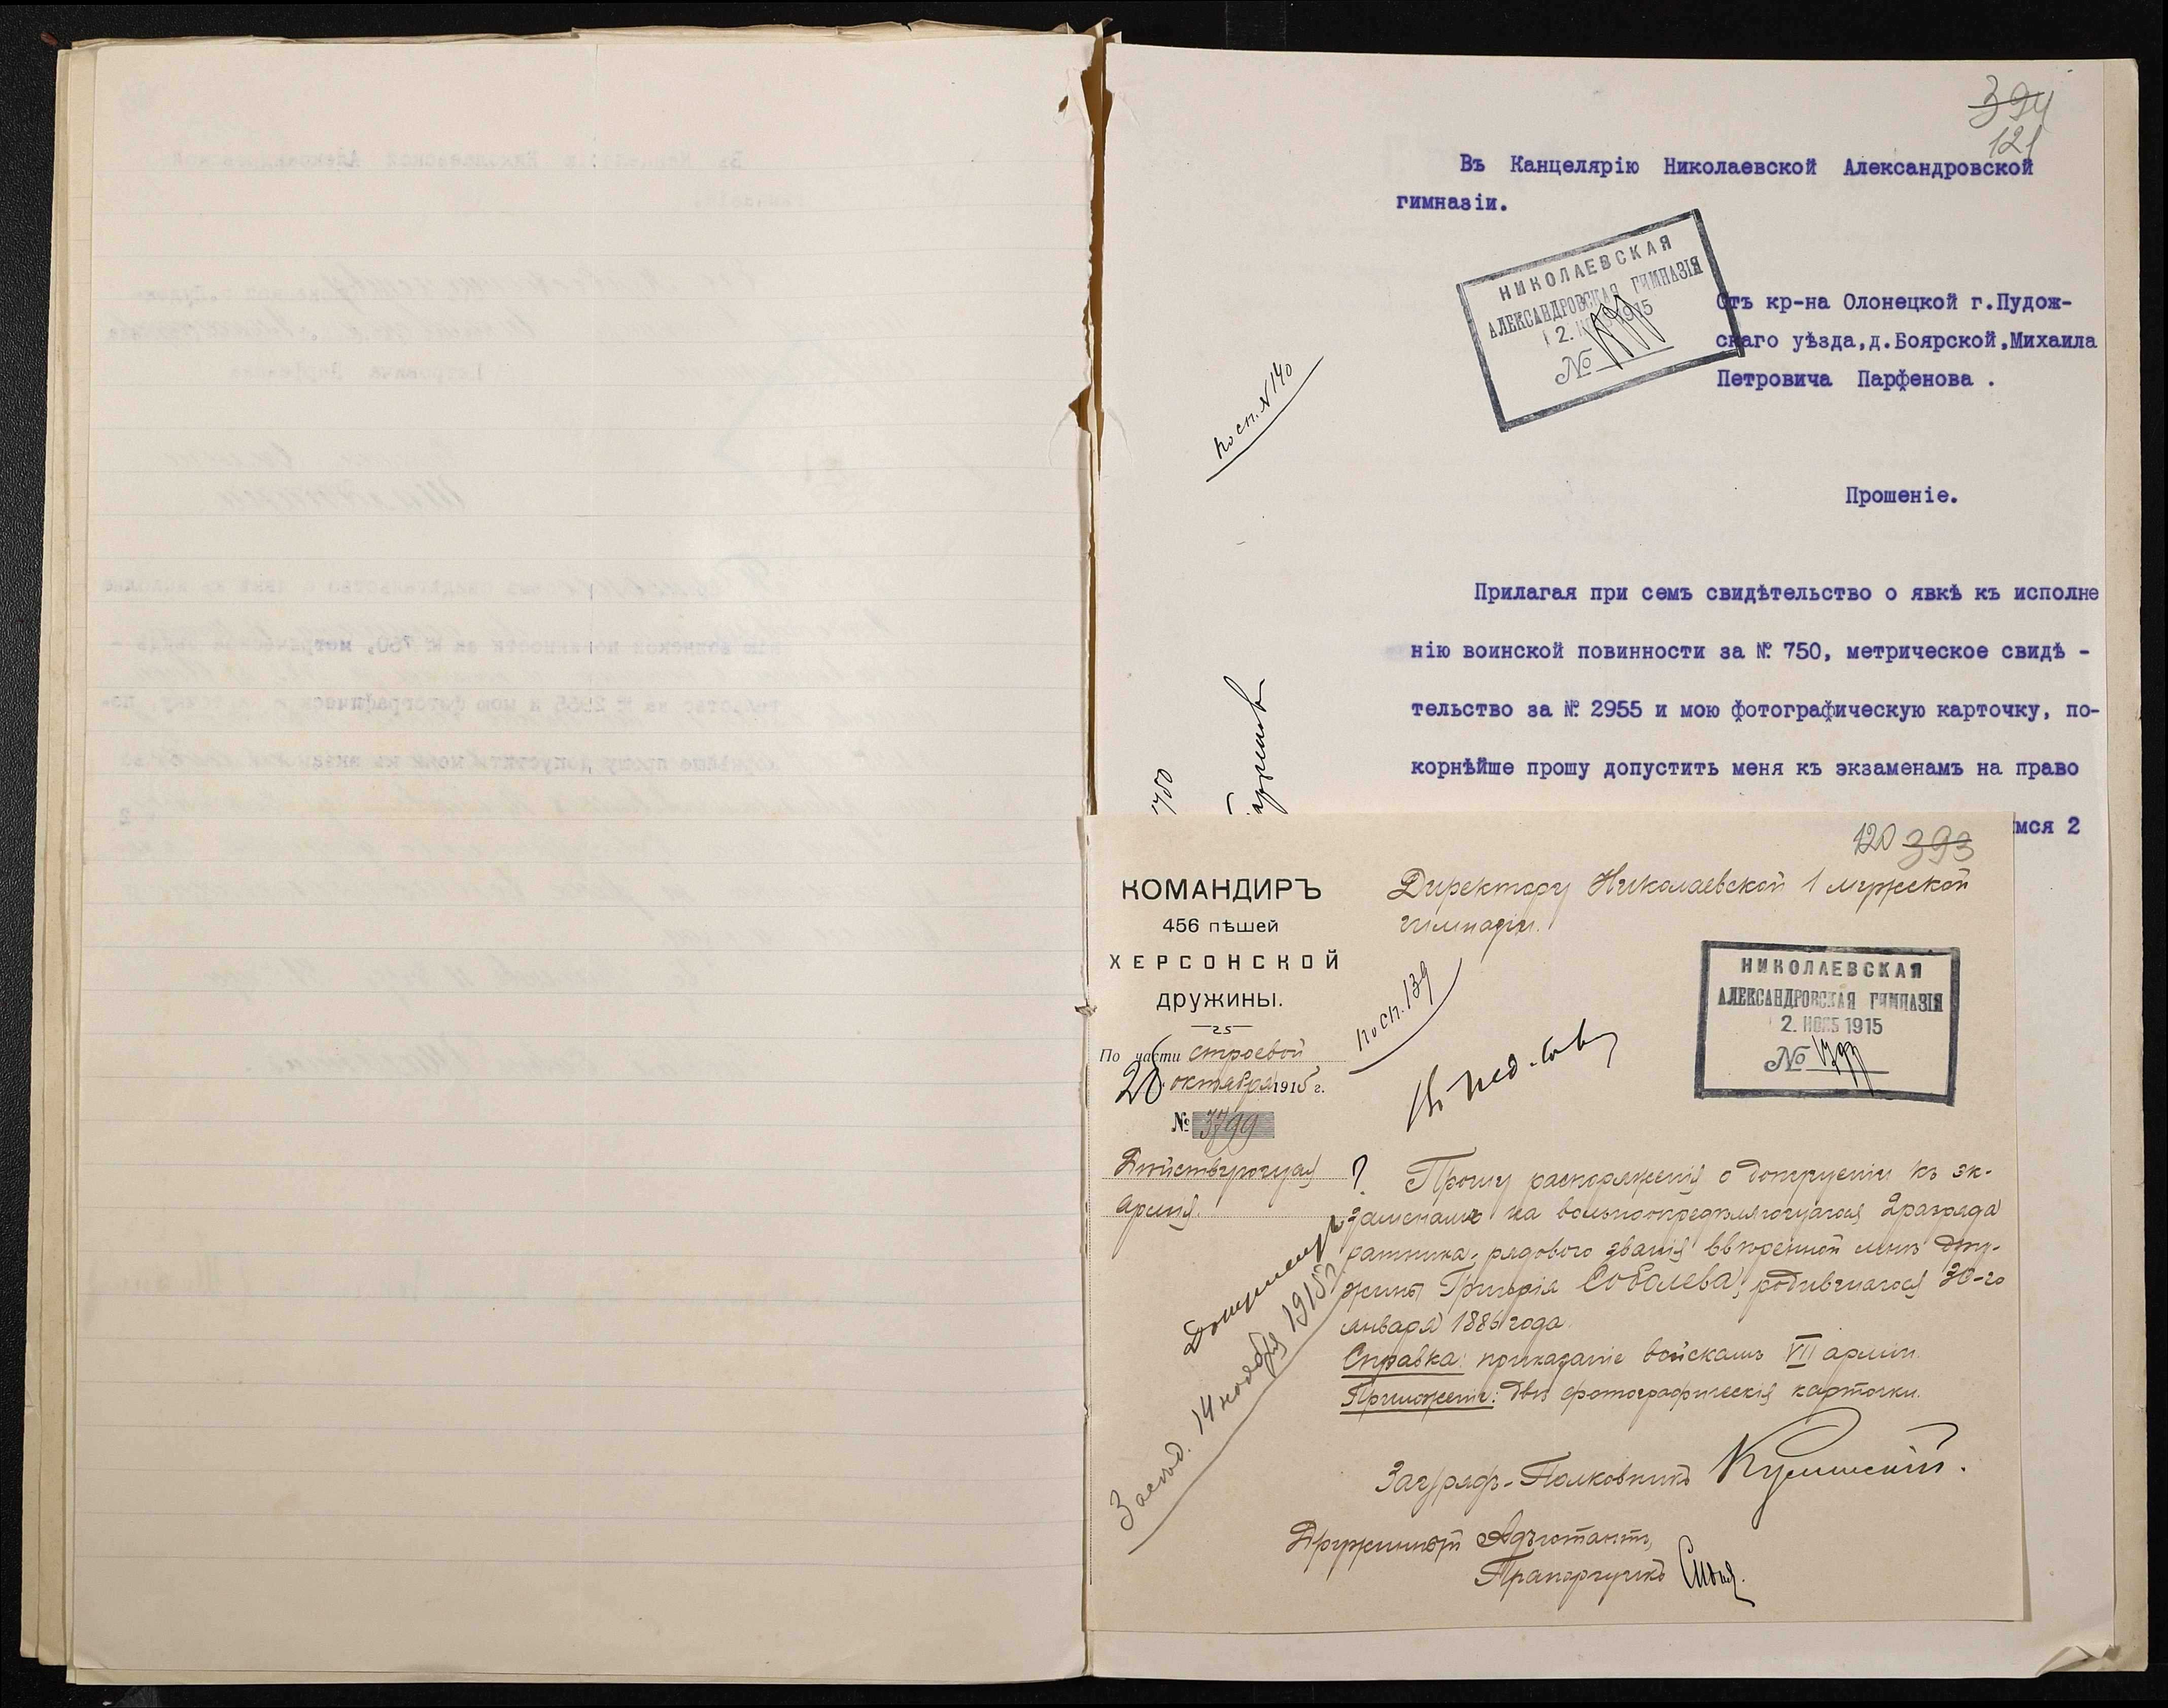 394
121
Въ Канцелярію Николаевской Александровской
гимназіи.
НИКОЛАЕВСКАЯ
АЛЕКСАНДРОВСКАЯ ГИМНАЗІЯ
2. НОЯБ 1915
№
Отъ кр-на Олонецкой г.Пудож-
скаго уѣзда,д.Боярской,Михаила
Петровича Парфенова .
по сп. № 140
Прошеніе.
Прилагая при семъ свидѣтельство о явкѣ къ исполне
нію воинской повинности за № 750, метрическое свидѣ -
тельство за № 2955 и мою фотографическую карточку, по-
корнѣйше прошу допустить меня къ экзаменамъ на право
мся 2
120 393
КОМАНДИРЪ
456 пѣшей
ХЕРСОНСКОЙ
дружины.
По части строевой
26 октября 1915 г.
№ 3799
Дѣйствующая
армія.
Директору Николаевской 1 мужской
гимназіи.
по сп. 139
Въ пед. сов.
НИКОЛАЕВСКАЯ
АЛЕКСАНДРОВСКАЯ ГИМНАЗІЯ
2. НОЯБ 1915
№
? Прошу распоряженія о допущеніи къ эк-
заменамъ на вольноопредѣляющагося 2 разряда
ратника, рядового званія ввѣренной мнѣ дру-
жины Григорія Соболева, родившагося 30-го
января 1886 года
Справка: приказаніе войскамъ VII арміи.
Приложеніе: двѣ фотографическія карточки.
Засѣд. 14 ноября 1915 г.
Полковникъ
Дружинный Адъютантъ,
Прапорщикъ